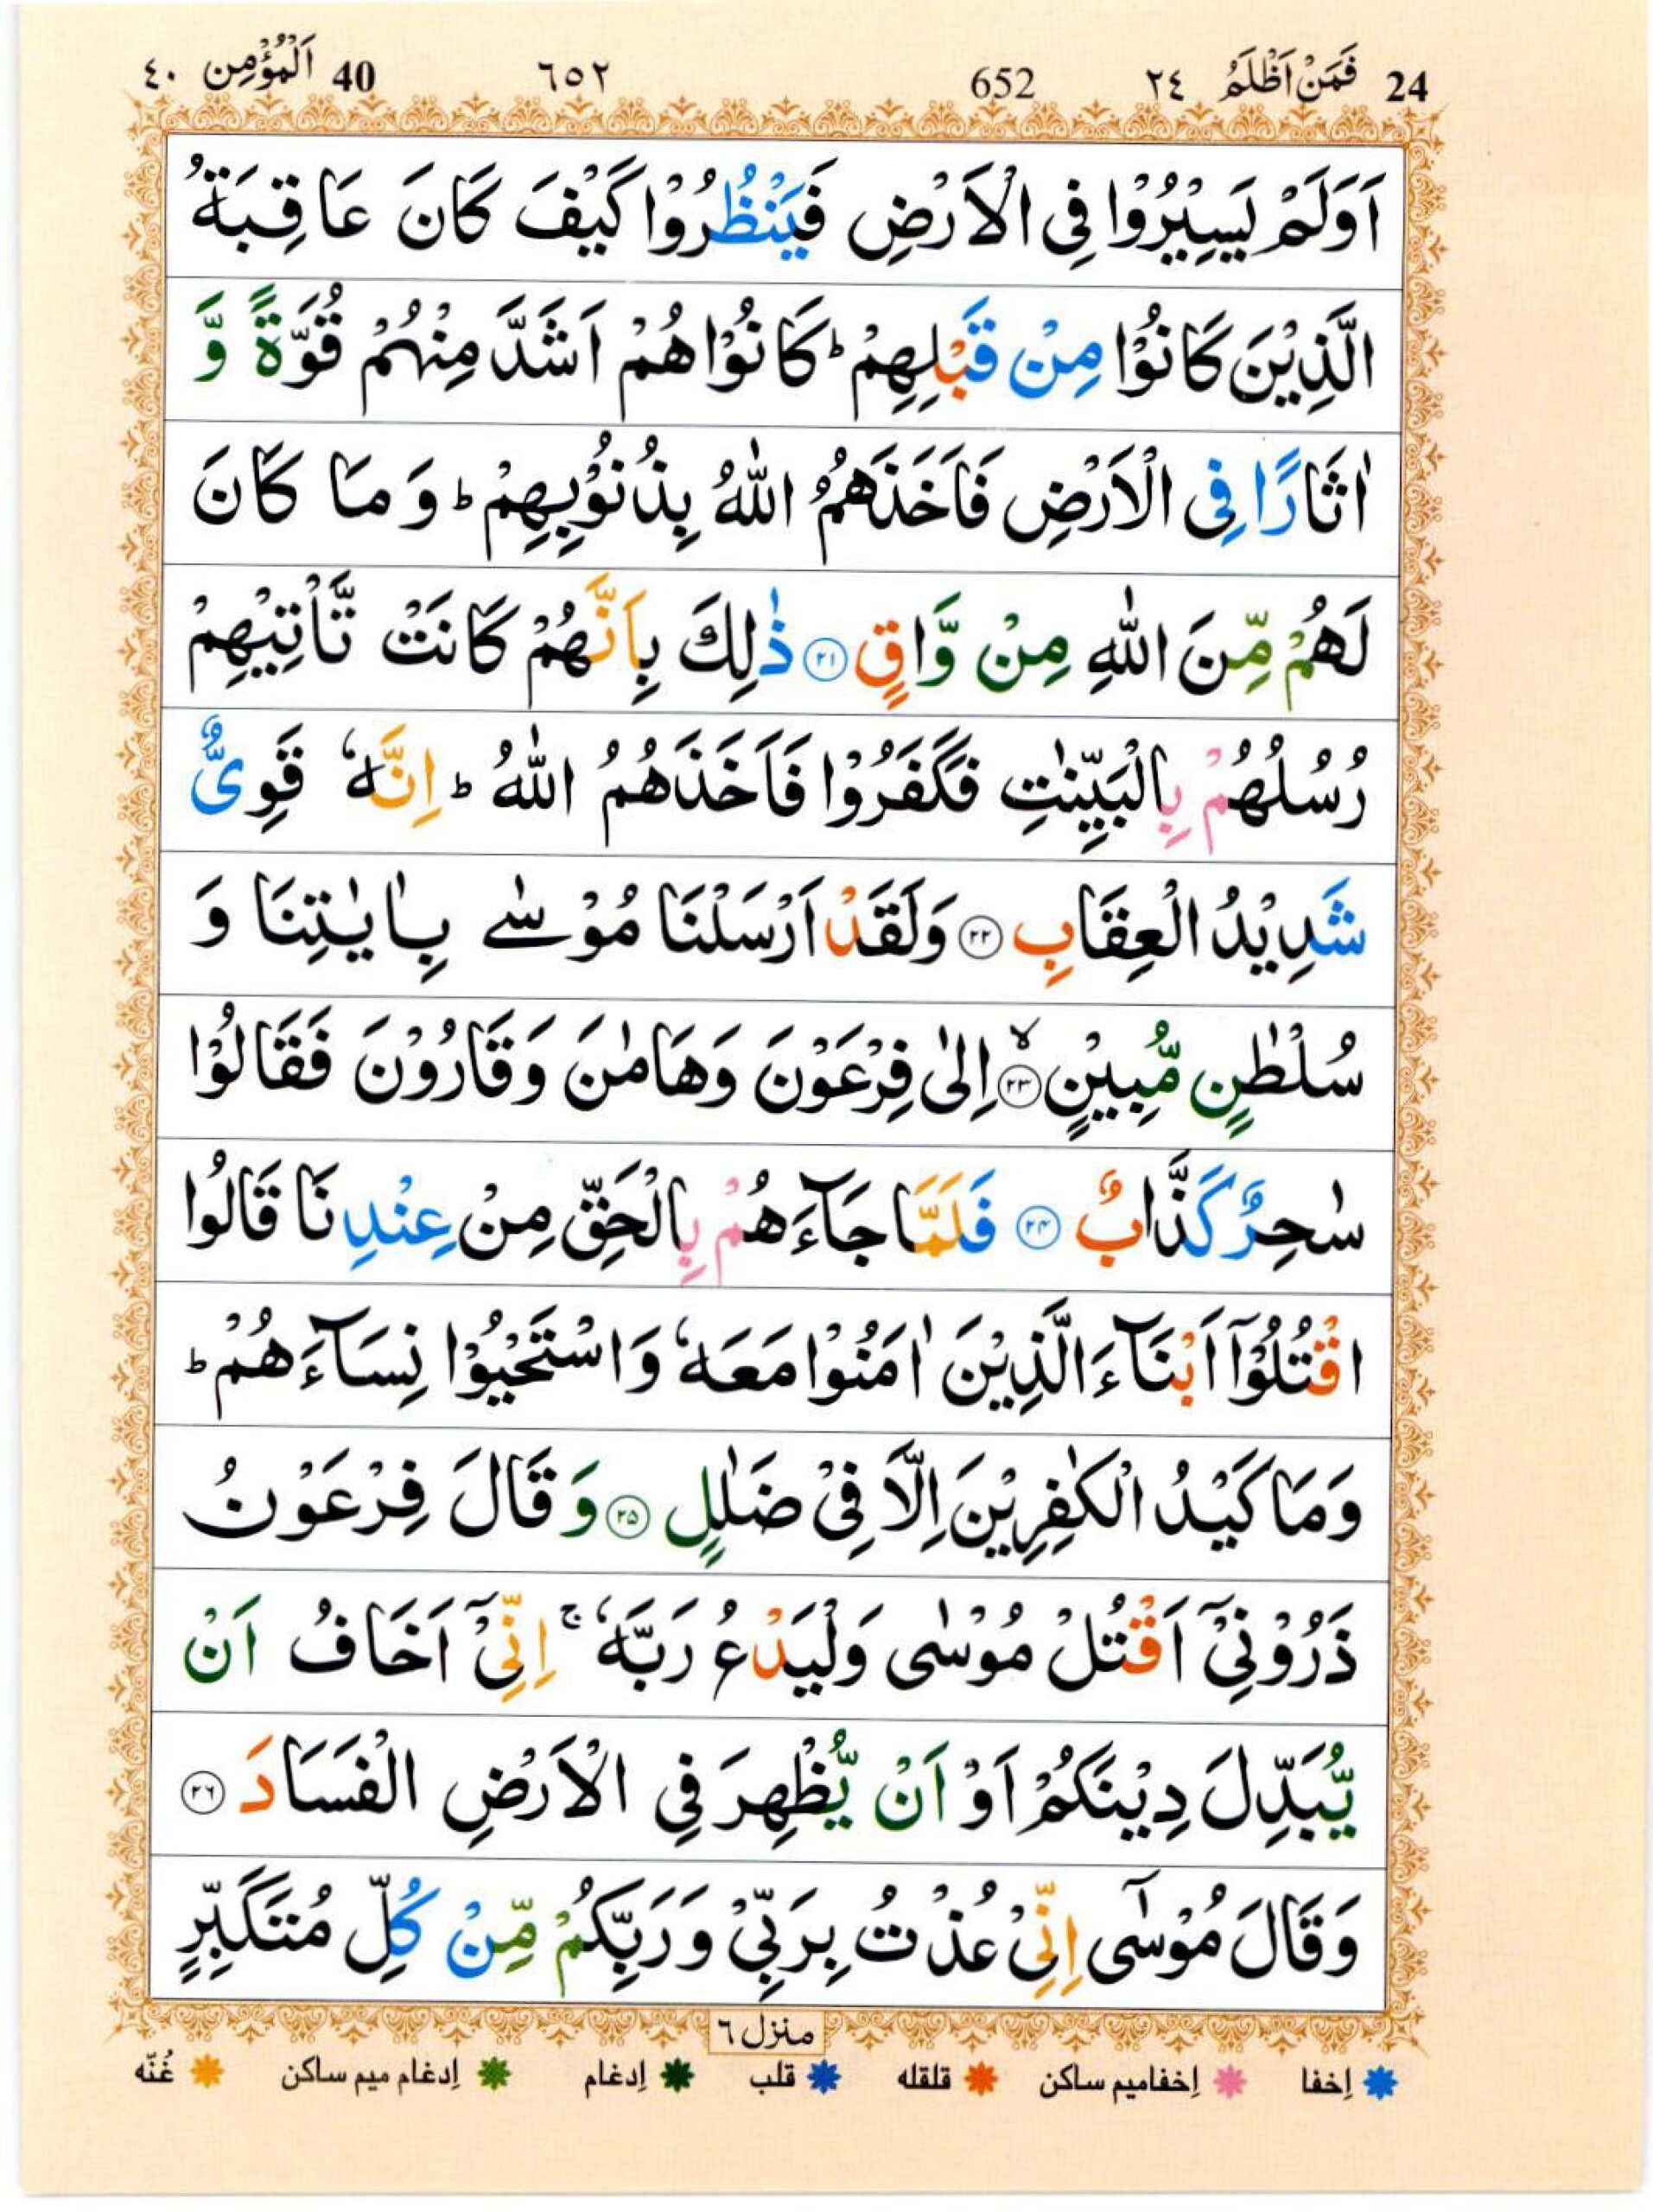 24 فَمَنْ اَظْلَمُ ٢٤ 652 ٦٥٢ 40 اَلْمُؤْمِن ٤٠
اَوَلَمْ يَسِيْرُوْا فِى الْاَرْضِ فَيَنْظُرُوْا كَيْفَ كَانَ عَاقِبَةُ
الَّذِيْنَ كَانُوْا مِنْ قَبْلِهِمْ ؕ كَانُوْا هُمْ اَشَدَّ مِنْهُمْ قُوَّةً وَّ
اٰثَارًا فِى الْاَرْضِ فَاَخَذَهُمُ اللّٰهُ بِذُنُوْبِهِمْ ؕ وَ مَا كَانَ
لَهُمْ مِّنَ اللّٰهِ مِنْ وَّاقٍ ﴿۲۱﴾ ذٰلِكَ بِاَنَّهُمْ كَانَتْ تَّاْتِيْهِمْ
رُسُلُهُمْ بِالْبَيِّنٰتِ فَكَفَرُوْا فَاَخَذَهُمُ اللّٰهُ ؕ اِنَّهٗ قَوِىٌّ
شَدِيْدُ الْعِقَابِ ﴿۲۲﴾ وَلَقَدْ اَرْسَلْنَا مُوْسٰے بِاٰيٰتِنَا وَ
سُلْطٰنٍ مُّبِيْنٍ ﴿۲۳﴾ ۙ اِلٰى فِرْعَوْنَ وَهَامٰنَ وَقَارُوْنَ فَقَالُوْا
سٰحِرٌ كَذَّابٌ ﴿۲۴﴾ فَلَمَّا جَآءَهُمْ بِالْحَقِّ مِنْ عِنْدِنَا قَالُوا
اقْتُلُوْۤا اَبْنَآءَ الَّذِيْنَ اٰمَنُوْا مَعَهٗ وَاسْتَحْيُوْا نِسَآءَهُمْ ؕ
وَمَا كَيْدُ الْكٰفِرِيْنَ اِلَّا فِىْ ضَلٰلٍ ﴿۲۵﴾ وَقَالَ فِرْعَوْنُ
ذَرُوْنِىْۤ اَقْتُلْ مُوْسٰى وَلْيَدْعُ رَبَّهٗ ۚ اِنِّىْۤ اَخَافُ اَنْ
يُّبَدِّلَ دِيْنَكُمْ اَوْ اَنْ يُّظْهِرَ فِى الْاَرْضِ الْفَسَادَ ﴿۲۶﴾
وَقَالَ مُوْسٰۤى اِنِّىْ عُذْتُ بِرَبِّىْ وَرَبِّكُمْ مِّنْ كُلِّ مُتَكَبِّرٍ
منزل ٦
إخفا إخفامیم ساکن قلقله قلب إدغام إدغام میم ساکن غُنّه